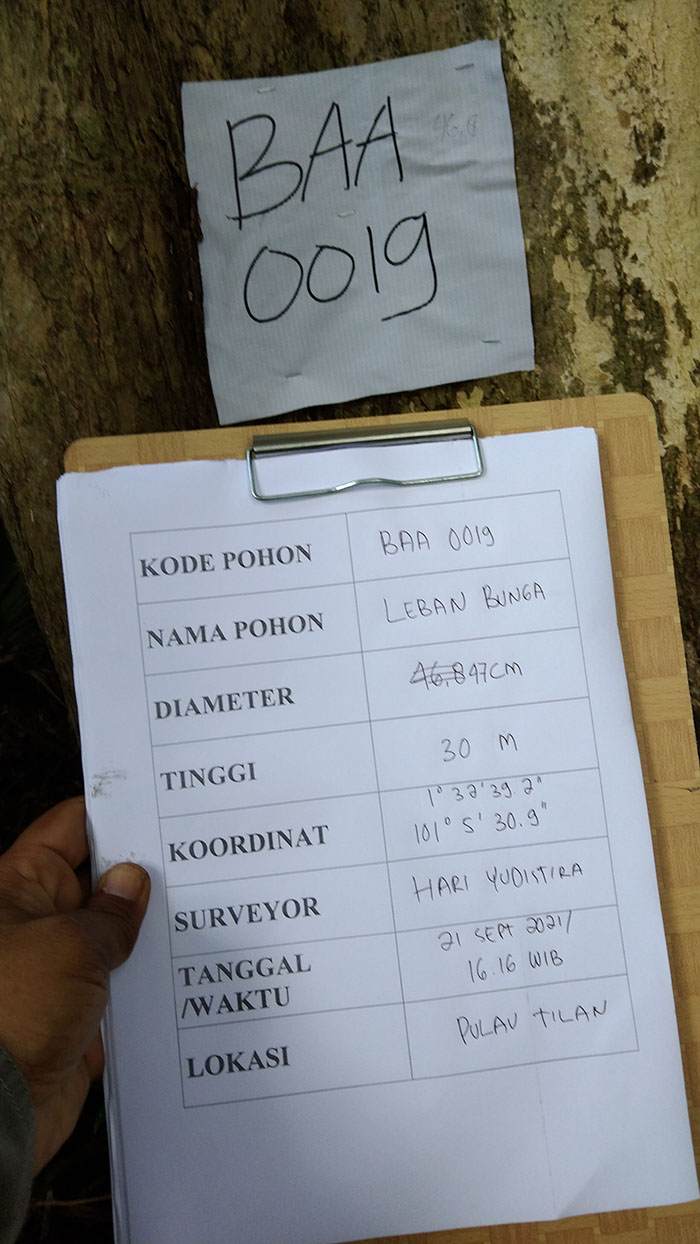 BAA 46,8
0019
KODE POHON BAA 0019
NAMA POHON LEBAN BUNGA
DIAMETER 46,847CM
TINGGI 30 M
KOORDINAT 1° 32' 39.2"
101° 5' 30.9"
SURVEYOR HARI YUDISTIRA
TANGGAL 21 SEPT 2021/
/WAKTU 16.16 WIB
LOKASI PULAU TILAN